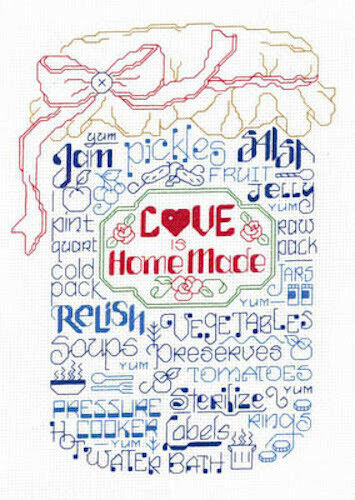 yum
Jam pickles SALSA
FRUIT
JELLY
YUM
pint
quart
LOVE
IS
HomeMade
raw
pack
cold
pack
JARS
YUM
RELISH
VEGETABLES
Soups
Preserves
YUM
TOMATOES
YUM
Sterilize
PRESSURE
COOKER
RINGS
HOT
YUM
Labels
WATER BATH